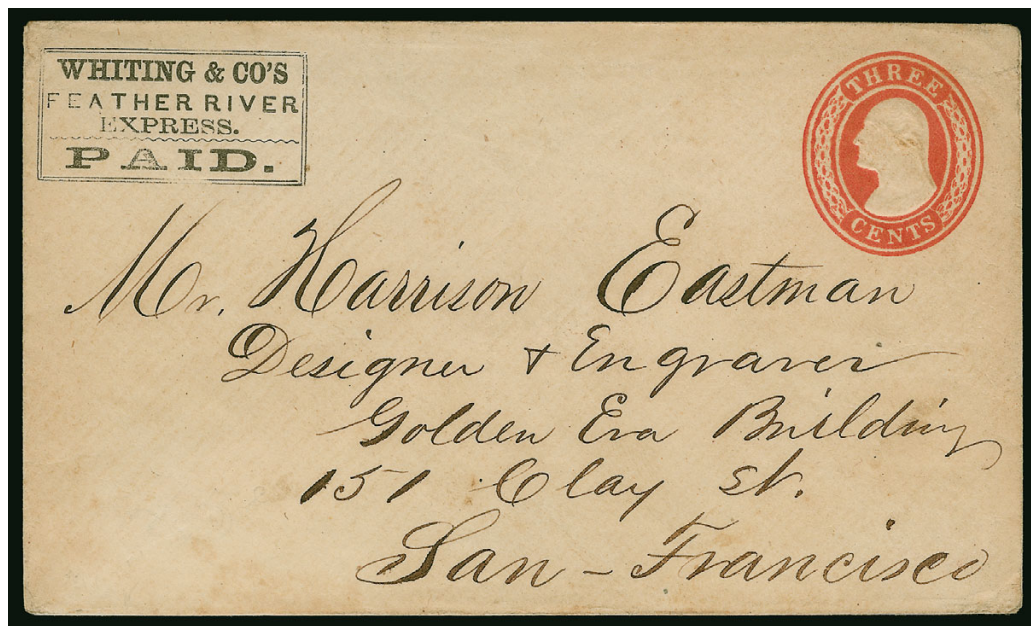 WHITING & CO'S
FEATHER RIVER
EXPRESS.
PAID.
THREE
CENTS
Mr. Harrison Eastman
Designer & Engraver
Golden Era Building
151 Clay St.
San-Francisco